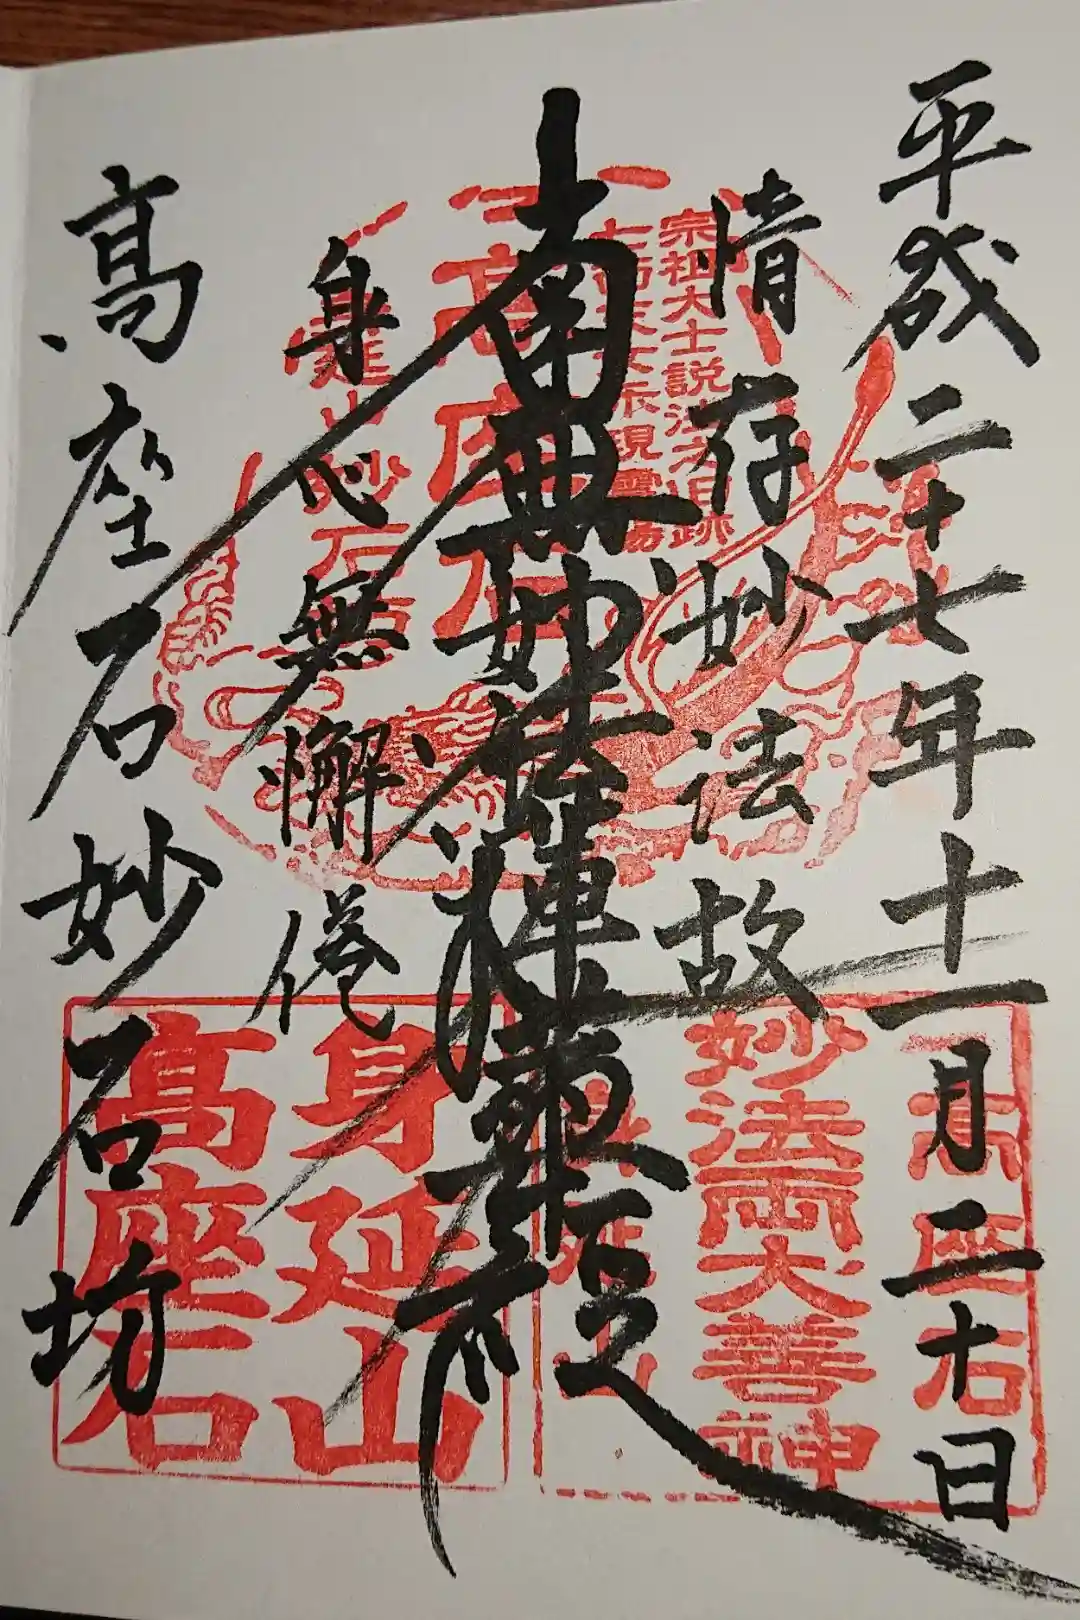 平成二十七年十一月二十日
情存妙法故
南無妙法蓮華経
身心無懈倦
髙座石妙石坊
宗祖大士説法之旧跡
七面天女示現霊場
髙座石
髙座石
妙法両大善神
身延山
身延山
髙座石